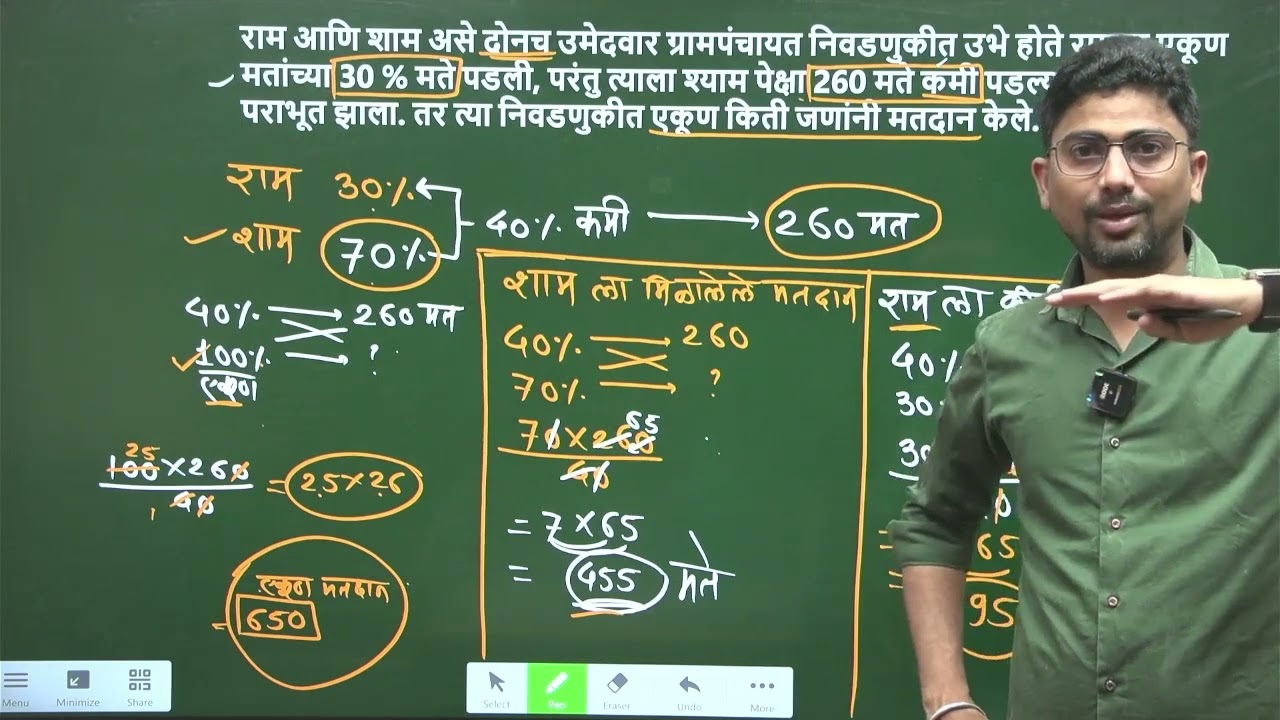 राम आणि शाम असे दोनच उमेदवार ग्रामपंचायत निवडणुकीत उभे होते एकूण
मतांच्या 30 % मते पडली, परंतु त्याला श्याम पेक्षा 260 मते कमी
पराभूत झाला. तर त्या निवडणुकीत एकूण किती जणांनी मतदान केले.
राम 30%
शाम 70%
40% कमी
260 मत
40% 260 मत
100% ?
एकूण
25
100 × 260
40
= 25×26
एकूण मतदान
= 650
शाम ला मिळालेले मतदान
40% 260
70% ?
65
70 × 260
40
= 7 × 65
= 455 मते
राम ला
40%
30
30
= 65
= 95
Menu
Minimize
Share
Select
Pen
Eraser
Undo
More